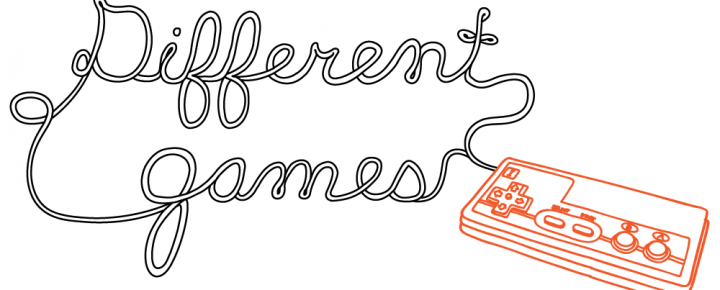 Different
games